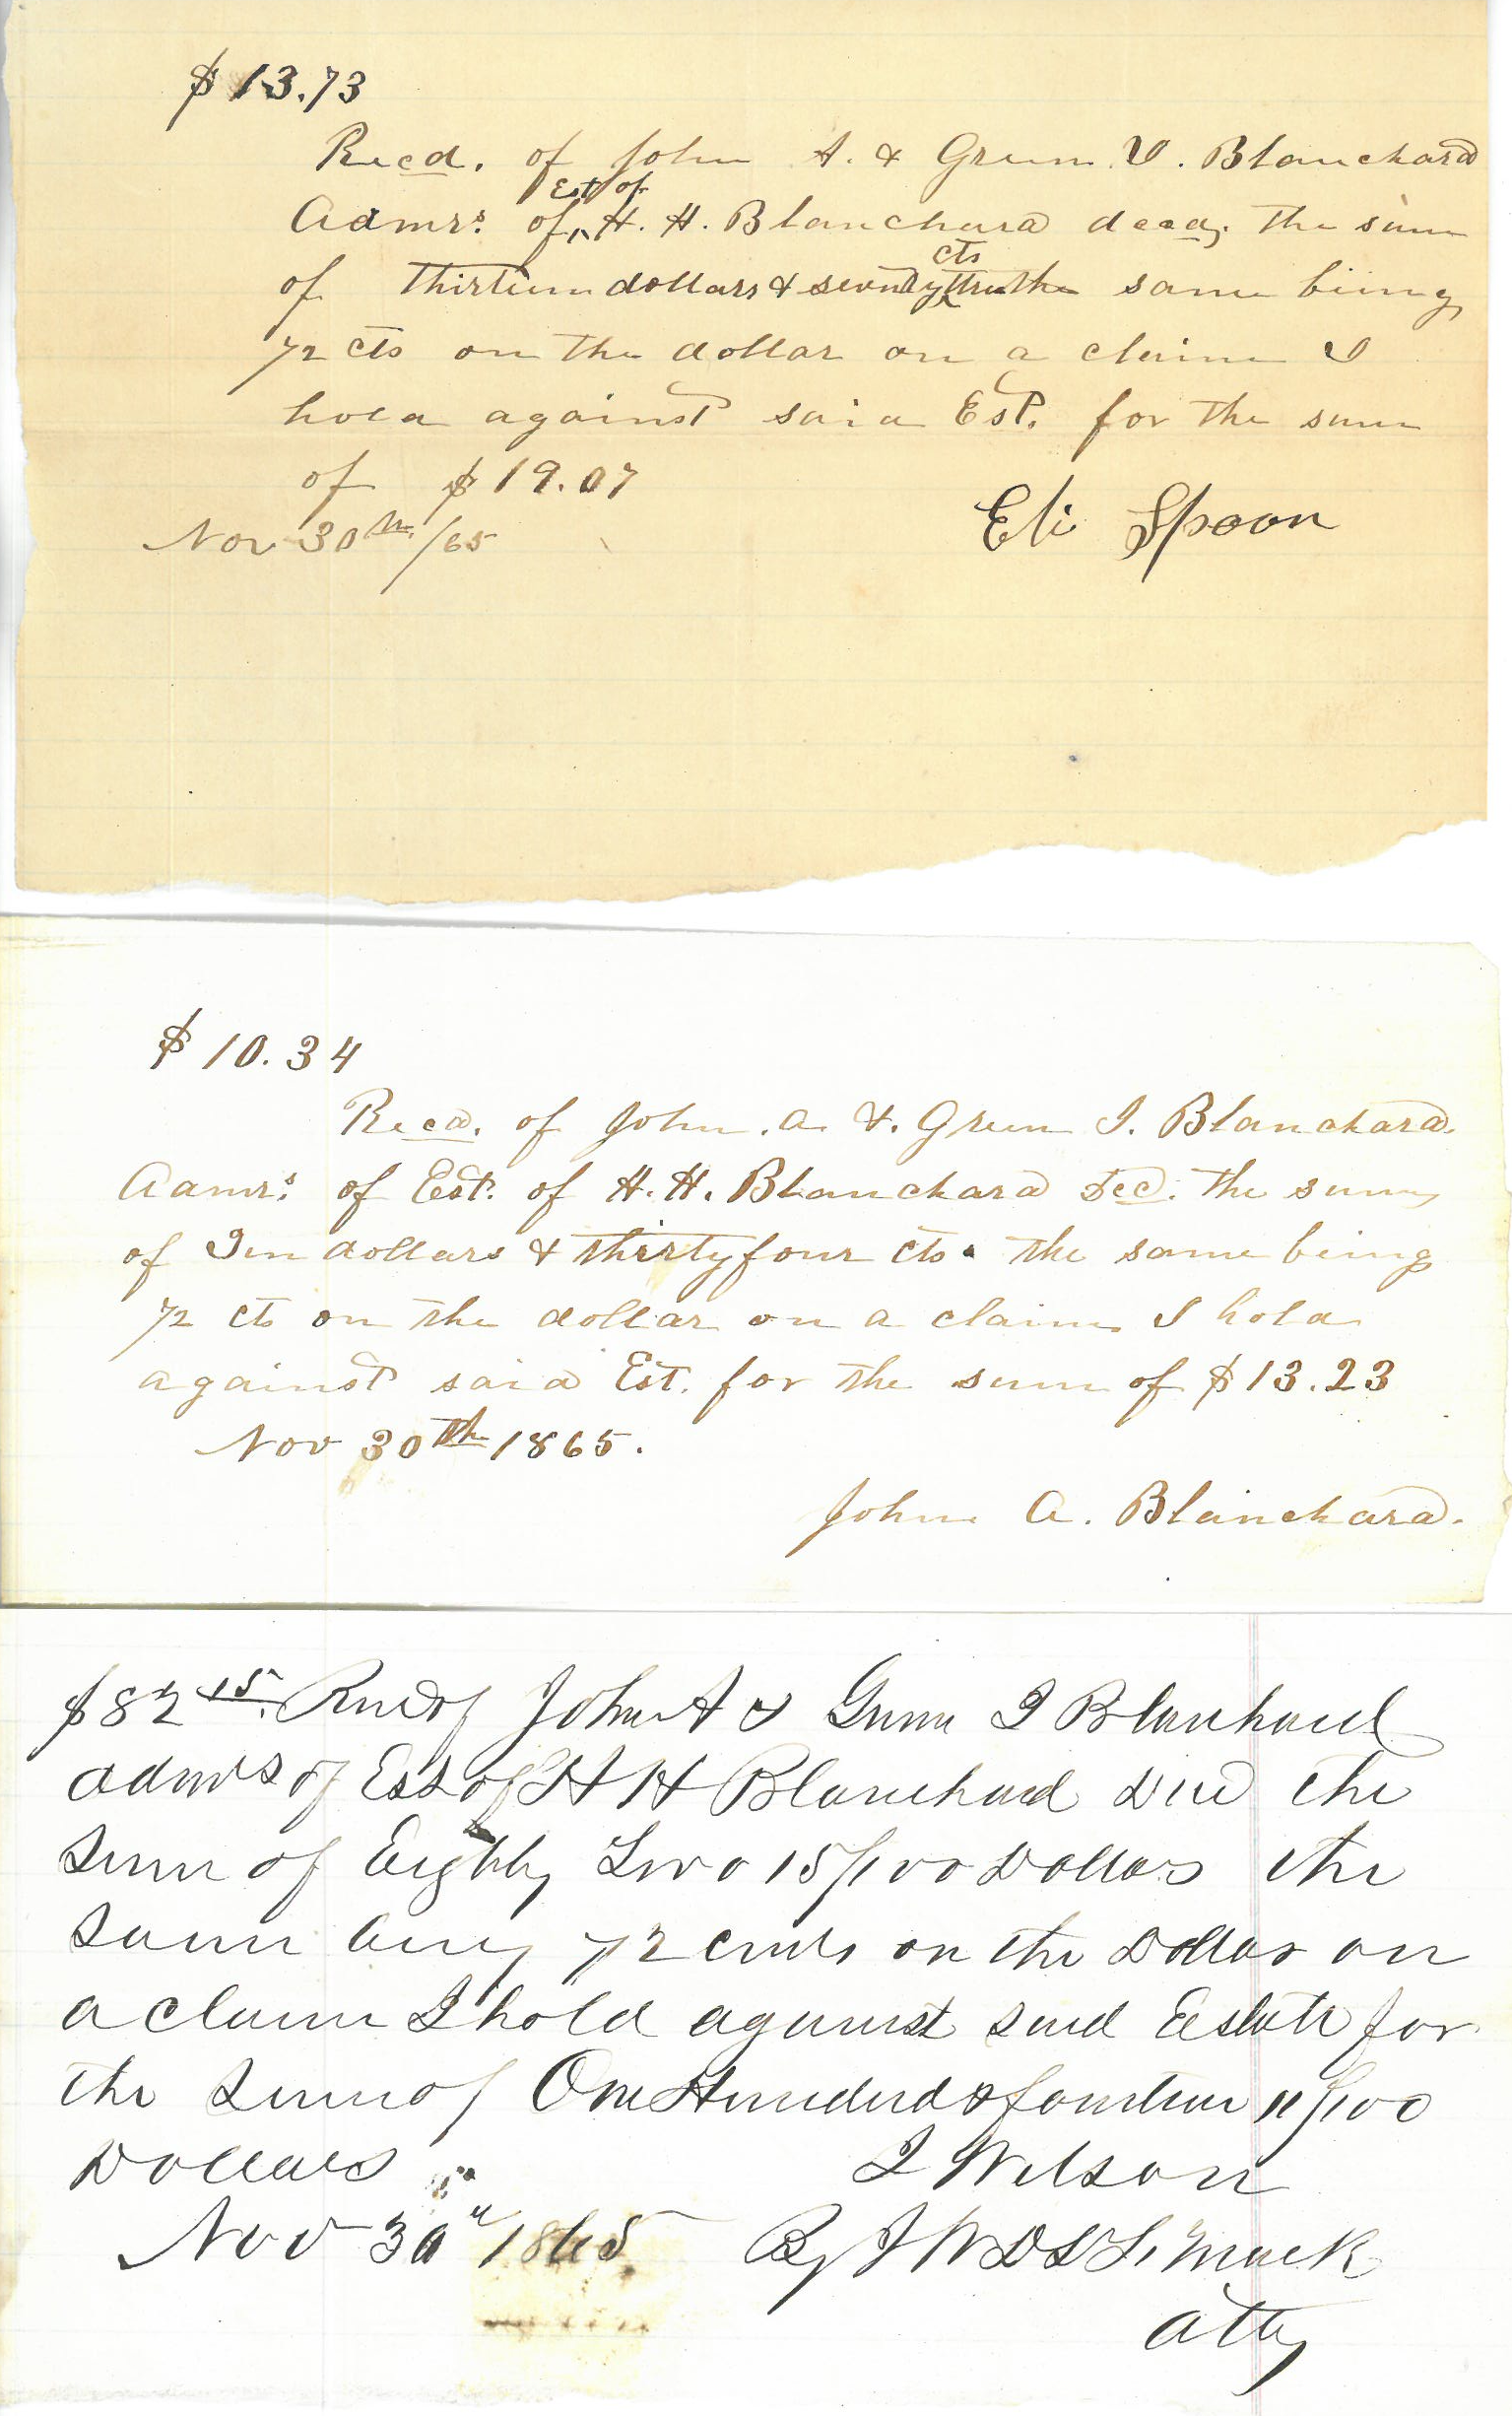 $13.73
Recd. of John A. & Green I. Blanchard
Est of
Admrs. of H. H. Blanchard decd, the sum
cts
of thirteen dollars & seventy three the same being
72 cts on the dollar on a claim I
hold against said Est. for the sum
of $19.07
Nov 30th /65
Eli Spoon
$10.34
Recd. of John. A. &. Green I. Blanchard.
Admrs. of Est. of H. H. Blanchard Decd. the sum
of Ten dollars & thirty four cts. the same being
72 cts on the dollar on a claim I hold
against said Est. for the sum of $13.23
Nov 30th 1865.
John A. Blanchard.
$82 15. Recd of John A & Green I Blanchard
admrs of Est of H H Blanchard Decd the
Sum of Eighty Two 15/100 Dollars the
same being 72 cents on the Dollar on
a claim I hold against said Estate for
the sum of One Hundred & fourteen 11/100
Dollars
I Wilson
Nov 30th 1865
By J W D L
Atty